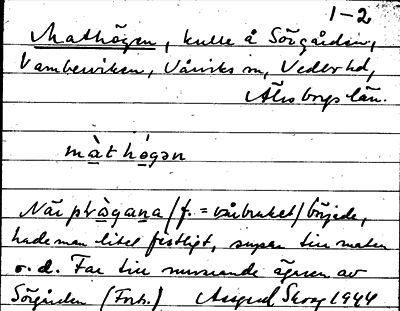 1-2
Mathögen, kulle å Sörgården,
Vamberviken, Vårviks sn, Vedbo hd,
Älvsborgs län.
màt högən
När plǫ̀gana (f. = vårbruket) började,
hade man litet festligt, supar till maten
o.d. Far till nuvarande ägaren av
Sörgården (Forts.) Assgud Skog 1944